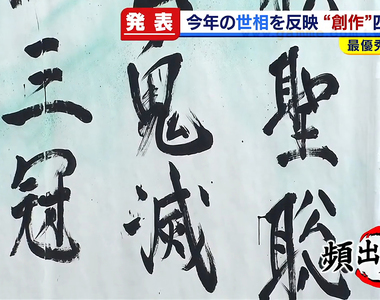 発表 今年の世相を反映 “創作”
最優秀
聖聡
鬼滅
三冠
頻出